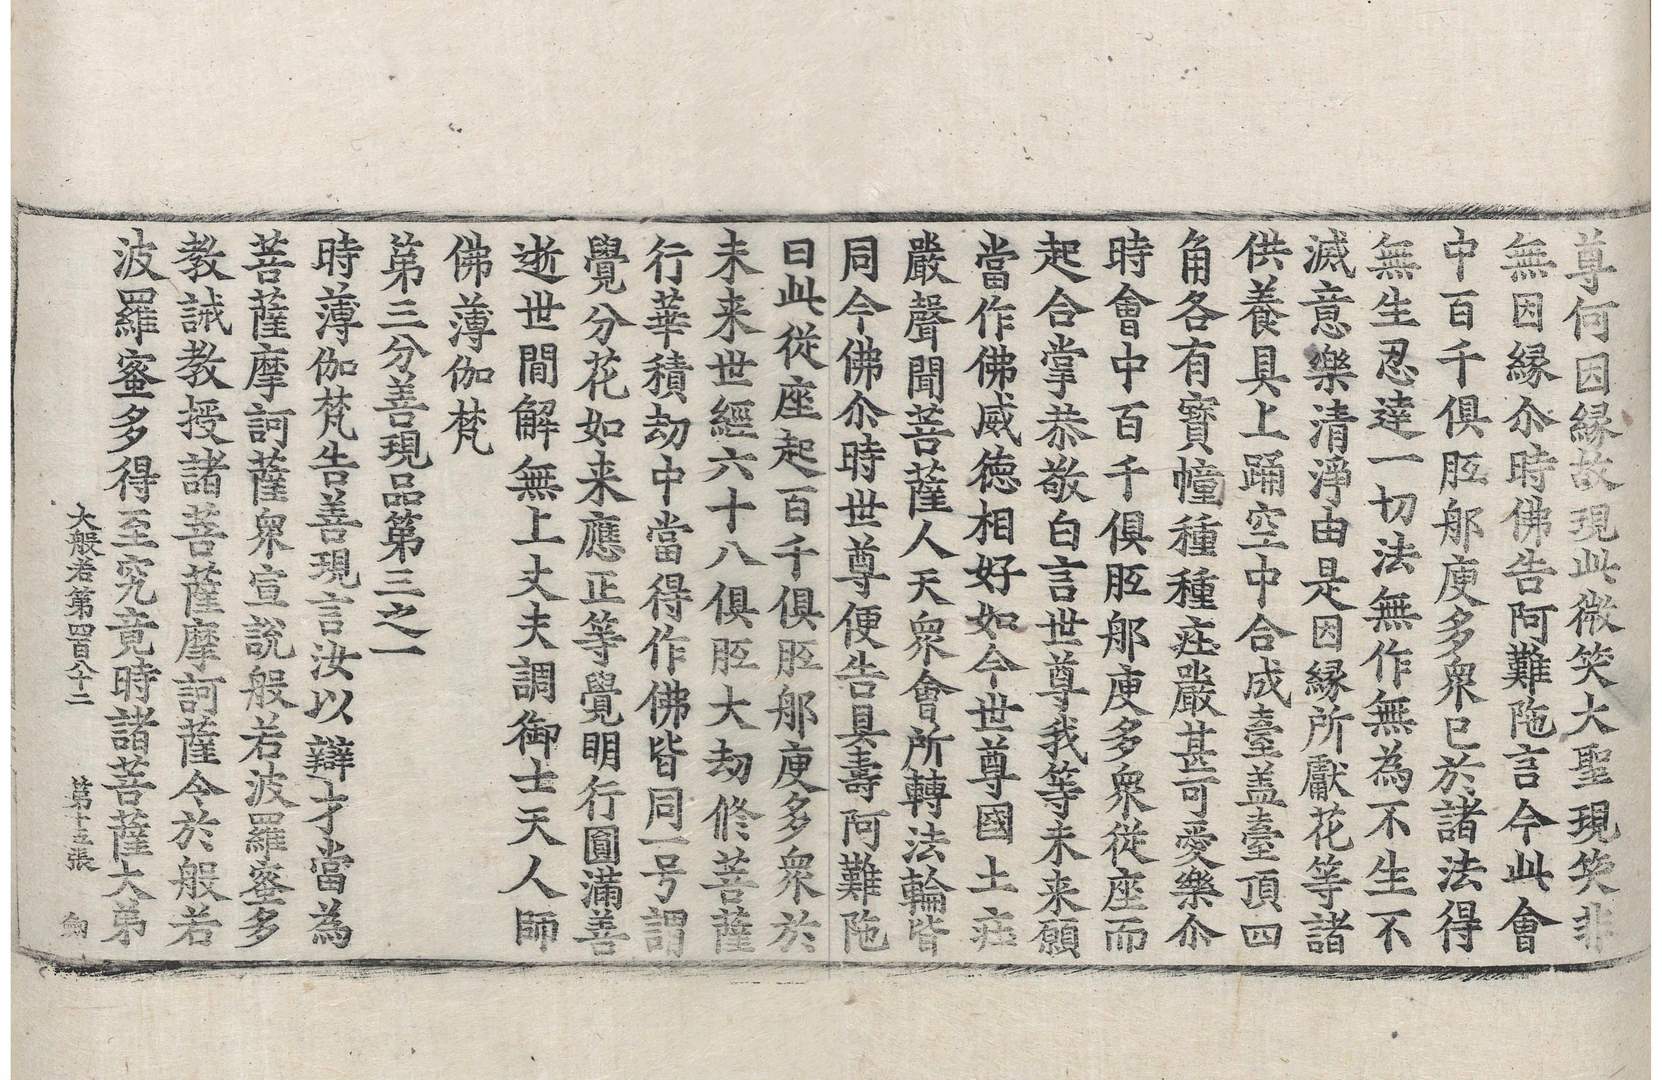 尊何因縁故現此微笑大聖現笑非
無因縁尒時佛告阿難陁言今此㑹
中百千俱胝䣯庾多衆已於諸法得
無生忍達一切法無作無為不生不
滅意樂清淨由是因縁所獻花等諸
供養具上踊空中合成臺盖臺頂四
角各有寳幢種種㽵嚴甚可愛樂尒
時㑹中百千俱胝䣯庾多衆從座而
起合掌恭敬白言世尊我等未来願
當作佛威徳相好如今世尊國土㽵
嚴聲聞菩薩人天衆㑹所轉法輪皆
同今佛尒時世尊便告具壽阿難陁
曰此從座起百千俱胝䣯庾多衆於
未来世經六十八俱胝大劫修菩薩
行華積劫中當得作佛皆同一号謂
覺分花如来應正等覺明行圓滿善
逝世間解無上丈夫調御士天人師
佛薄伽梵
第三分善現品第三之一
時薄伽梵告善現言汝以辯才當為
菩薩摩訶薩衆宣説般若波羅蜜多
教誡教授諸菩薩摩訶薩今於般若
波羅蜜多得至究竟時諸菩薩大弟
大般若第四百八十二 第十五張